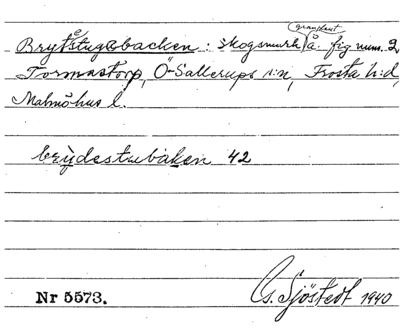 Brytstugebacken: skogsmark (granplant) å. fig num. 2,
Tormastorp, Ö. Sallerups s:n, Frosta h:d,
Malmöhus l.
brydestubaken 42
Nr 5573. G. Sjöstedt 1940